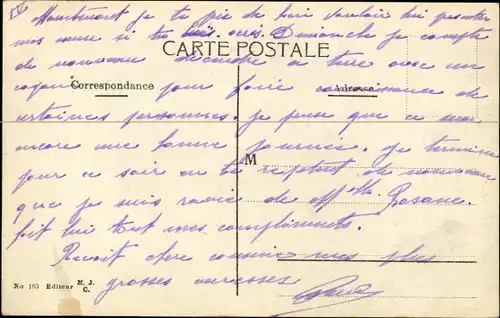 Maintenant je te prie de bien vouloir lui présenter
mes si tu Dimanche je compte
CARTE POSTALE
de nouveau descendre à terre avec un
Correspondance
Adresse
pour faire connaissance de
certaines personnes. je pense que ce sera
encore une bonne journée. Je termine
M
pour ce soir en te répétant de nouveau
que je suis ravie de Rosane.
fait lui tout mes compliments.
Reçoit chère cousine mes plus
grosses caresses
No 183 Editeur M. J. C.